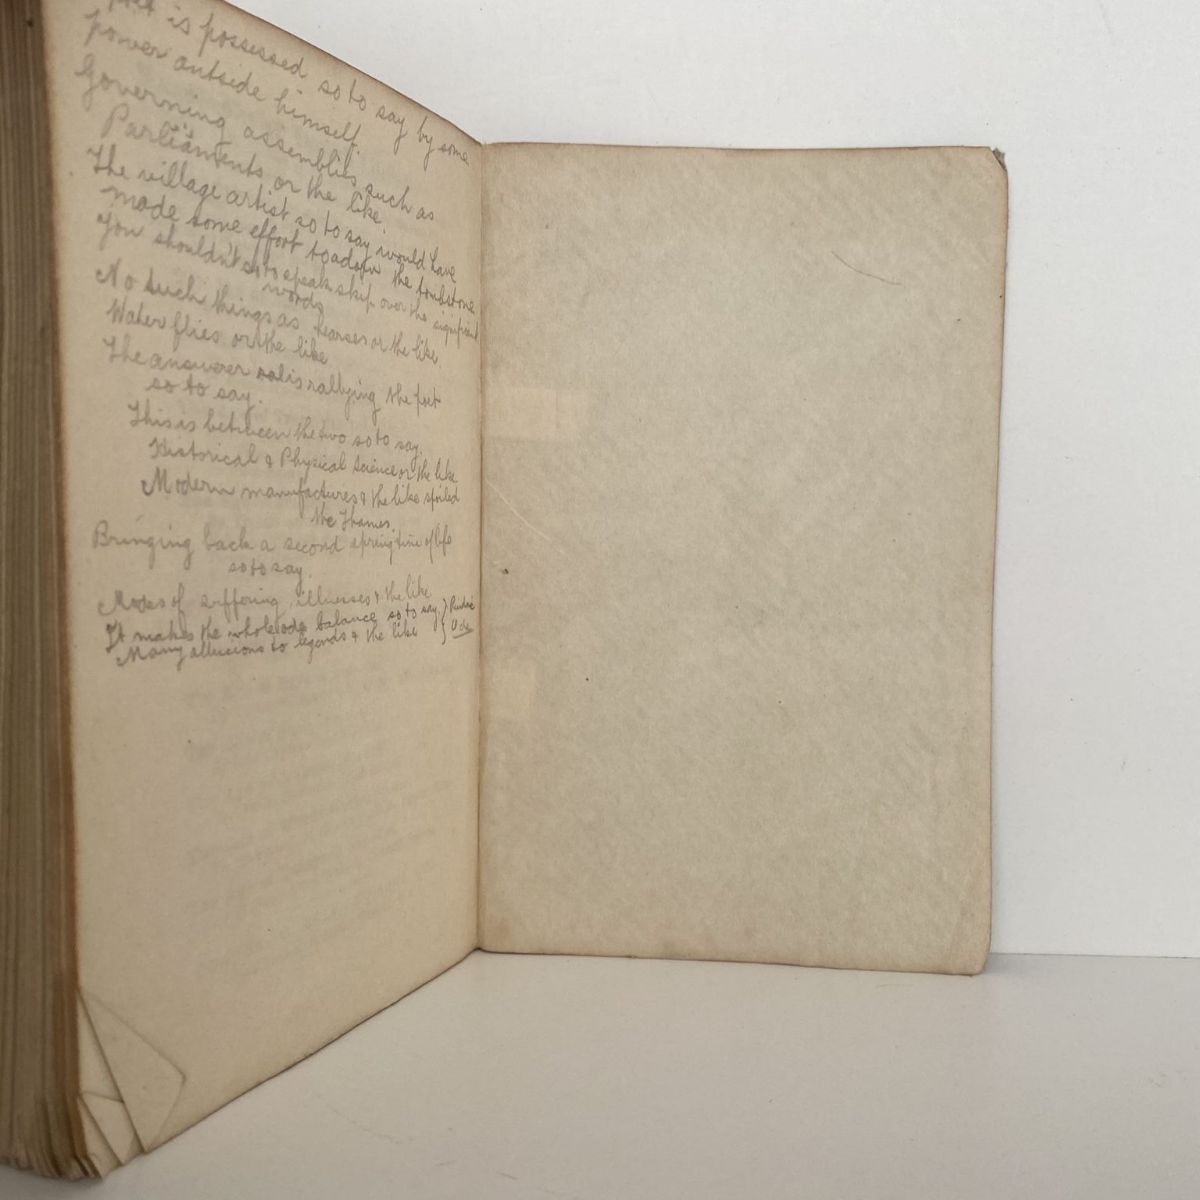 Poet is possessed so to say by some
power outside himself.
Governing assemblies such as
Parliaments or the like.
The village artist so to say would have
made some effort to adorn the tombstone
You shouldn't so to speak skip over the significant
words
No such things as hearses or the like.
Water flies or the like
The answerer is rallying the poet
so to say.
This is between the two so to say.
Historical & Physical Science or the like
Modern manufactures & the like spoiled
the Thames.
Bringing back a second springtime of life
so to say.
Modes of suffering, illnesses & the like
It makes the whole ode balance so to say.
Many allusions to legends & the like
Pindaric
Ode